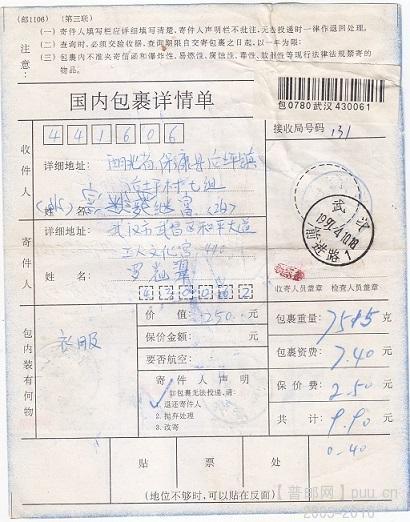 (邮1106) (第三联)
注意:
(一)寄件人填写栏应详细填写清楚,寄件人声明栏不批注,无法投递时一律作退回处理。
(二)查询时,必须交验收据,查询期限自交寄包裹之日起,以一年为限;
(三)包裹内不准夹寄信函和爆炸性、易燃性、腐蚀性、毒性、放射性等现行法律法规禁寄的物品。
国内包裹详情单
包 0780 武汉 430061
接收局号码 131
441606
收件人
详细地址: 湖北省保康县后坪镇
村七组
姓名: 继富 (收)
寄件人
详细地址: 武汉市武昌区和平大道
工人文化宫
姓名: 罗
430062
武汉
收寄人员盖章 检查人员盖章
包内装有何物
衣服
价值: 250 元
保价金额: 元
要否航空:
寄件人声明
如包裹无法投递,请:
✓1.退还寄件人
2.抛弃处理
3.改寄
包裹重量: 7515 克
包裹资费: 7.40 元
保价费: 2.50 元
共计: 9.90 元
0.40
贴 票 处
(地位不够时,可以贴在反面)
【普邮网】puu.cn
2003-2010